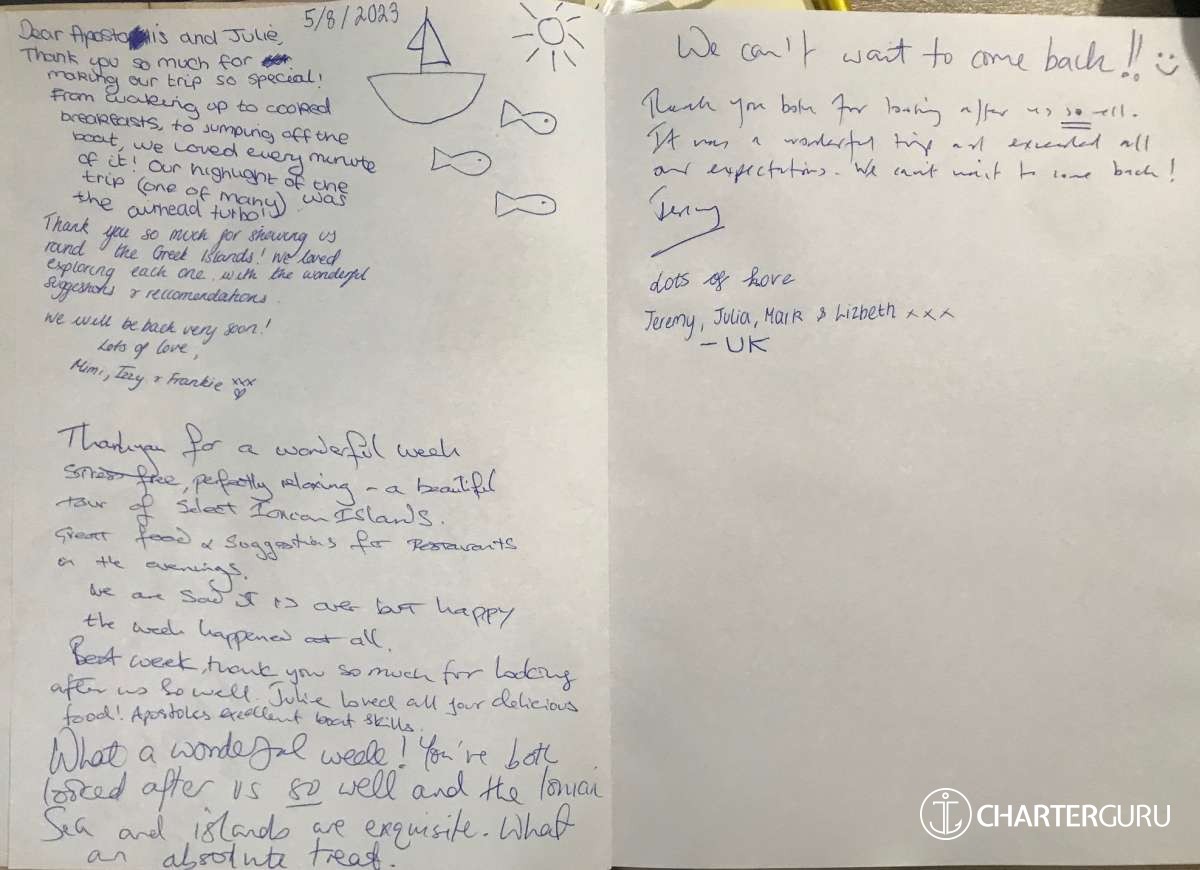 5/8/2023
Dear Apostolis and Julie,
Thank you so much for
making our trip so special!
From waking up to cooked
breakfasts, to jumping off the
boat, we loved every minute
of it! Our highlight of the
trip (one of many) was
the airhead turbo!
Thank you so much for showing us
round the Greek Islands! We loved
exploring each one with the wonderful
suggestions & reccomendations.
We will be back very soon!
Lots of love,
Mimi, Izzy & Frankie xxx
Thankyou for a wonderful week
Stress free, perfectly relaxing - a beautiful
tour of Select Ionian Islands.
Great food & suggestions for Restaurants
in the evenings.
We are sad it is over but happy
the week happened at all.
Best week, thank you so much for looking
after us so well. Julie loved all your delicious
food! Apostoles excellent boat skills.
What a wonderful week! You've both
looked after us so well and the Ionian
Sea and islands are exquisite. What
an absolute treat.
We can't want to come back!! :)
Thank you both for looking after us so well.
It was a wonderful trip and exceeded all
our expectations. We can't wait to come back!
Jeremy
Lots of Love
Jeremy, Julia, Mark & Lizbeth xxx
- UK
CHARTERGURU